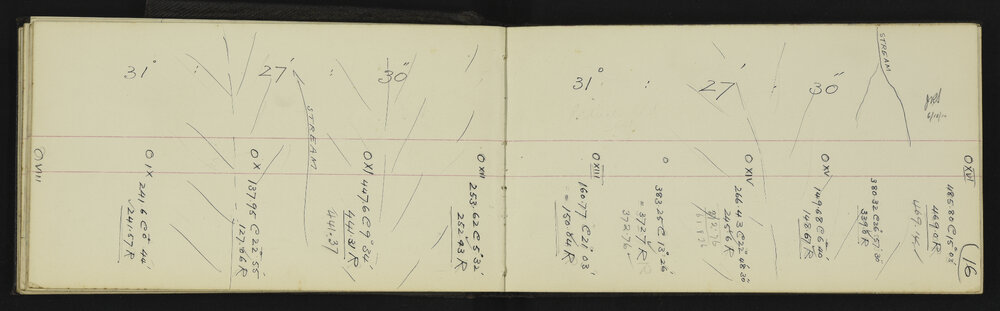 31° : 27' : 30"
STREAM
O VIII
O IX 241.6 C 0° 44'
241.57 R
O X 137.95 C 22° 55'
127.06 R
O XI 447.6 C 9° 34'
441.31 R
441.37
O XII 253.62 C 5° 32'
252.43 R
31° : 27' : 30"
STREAM
O XIII 160.77 C 21° 03'
= 150.84 R
O 383.25 C 13° 26'
= 372.74 R
372.76
O XIV 266.43 C 22° 08' 30"
245.6 R
O XV 149.68 C 6° 40'
148.67 R
380.32 C 26° 57' 30"
339.8 R
O XVI 485.80 C 15° 03'
469.0 R
16